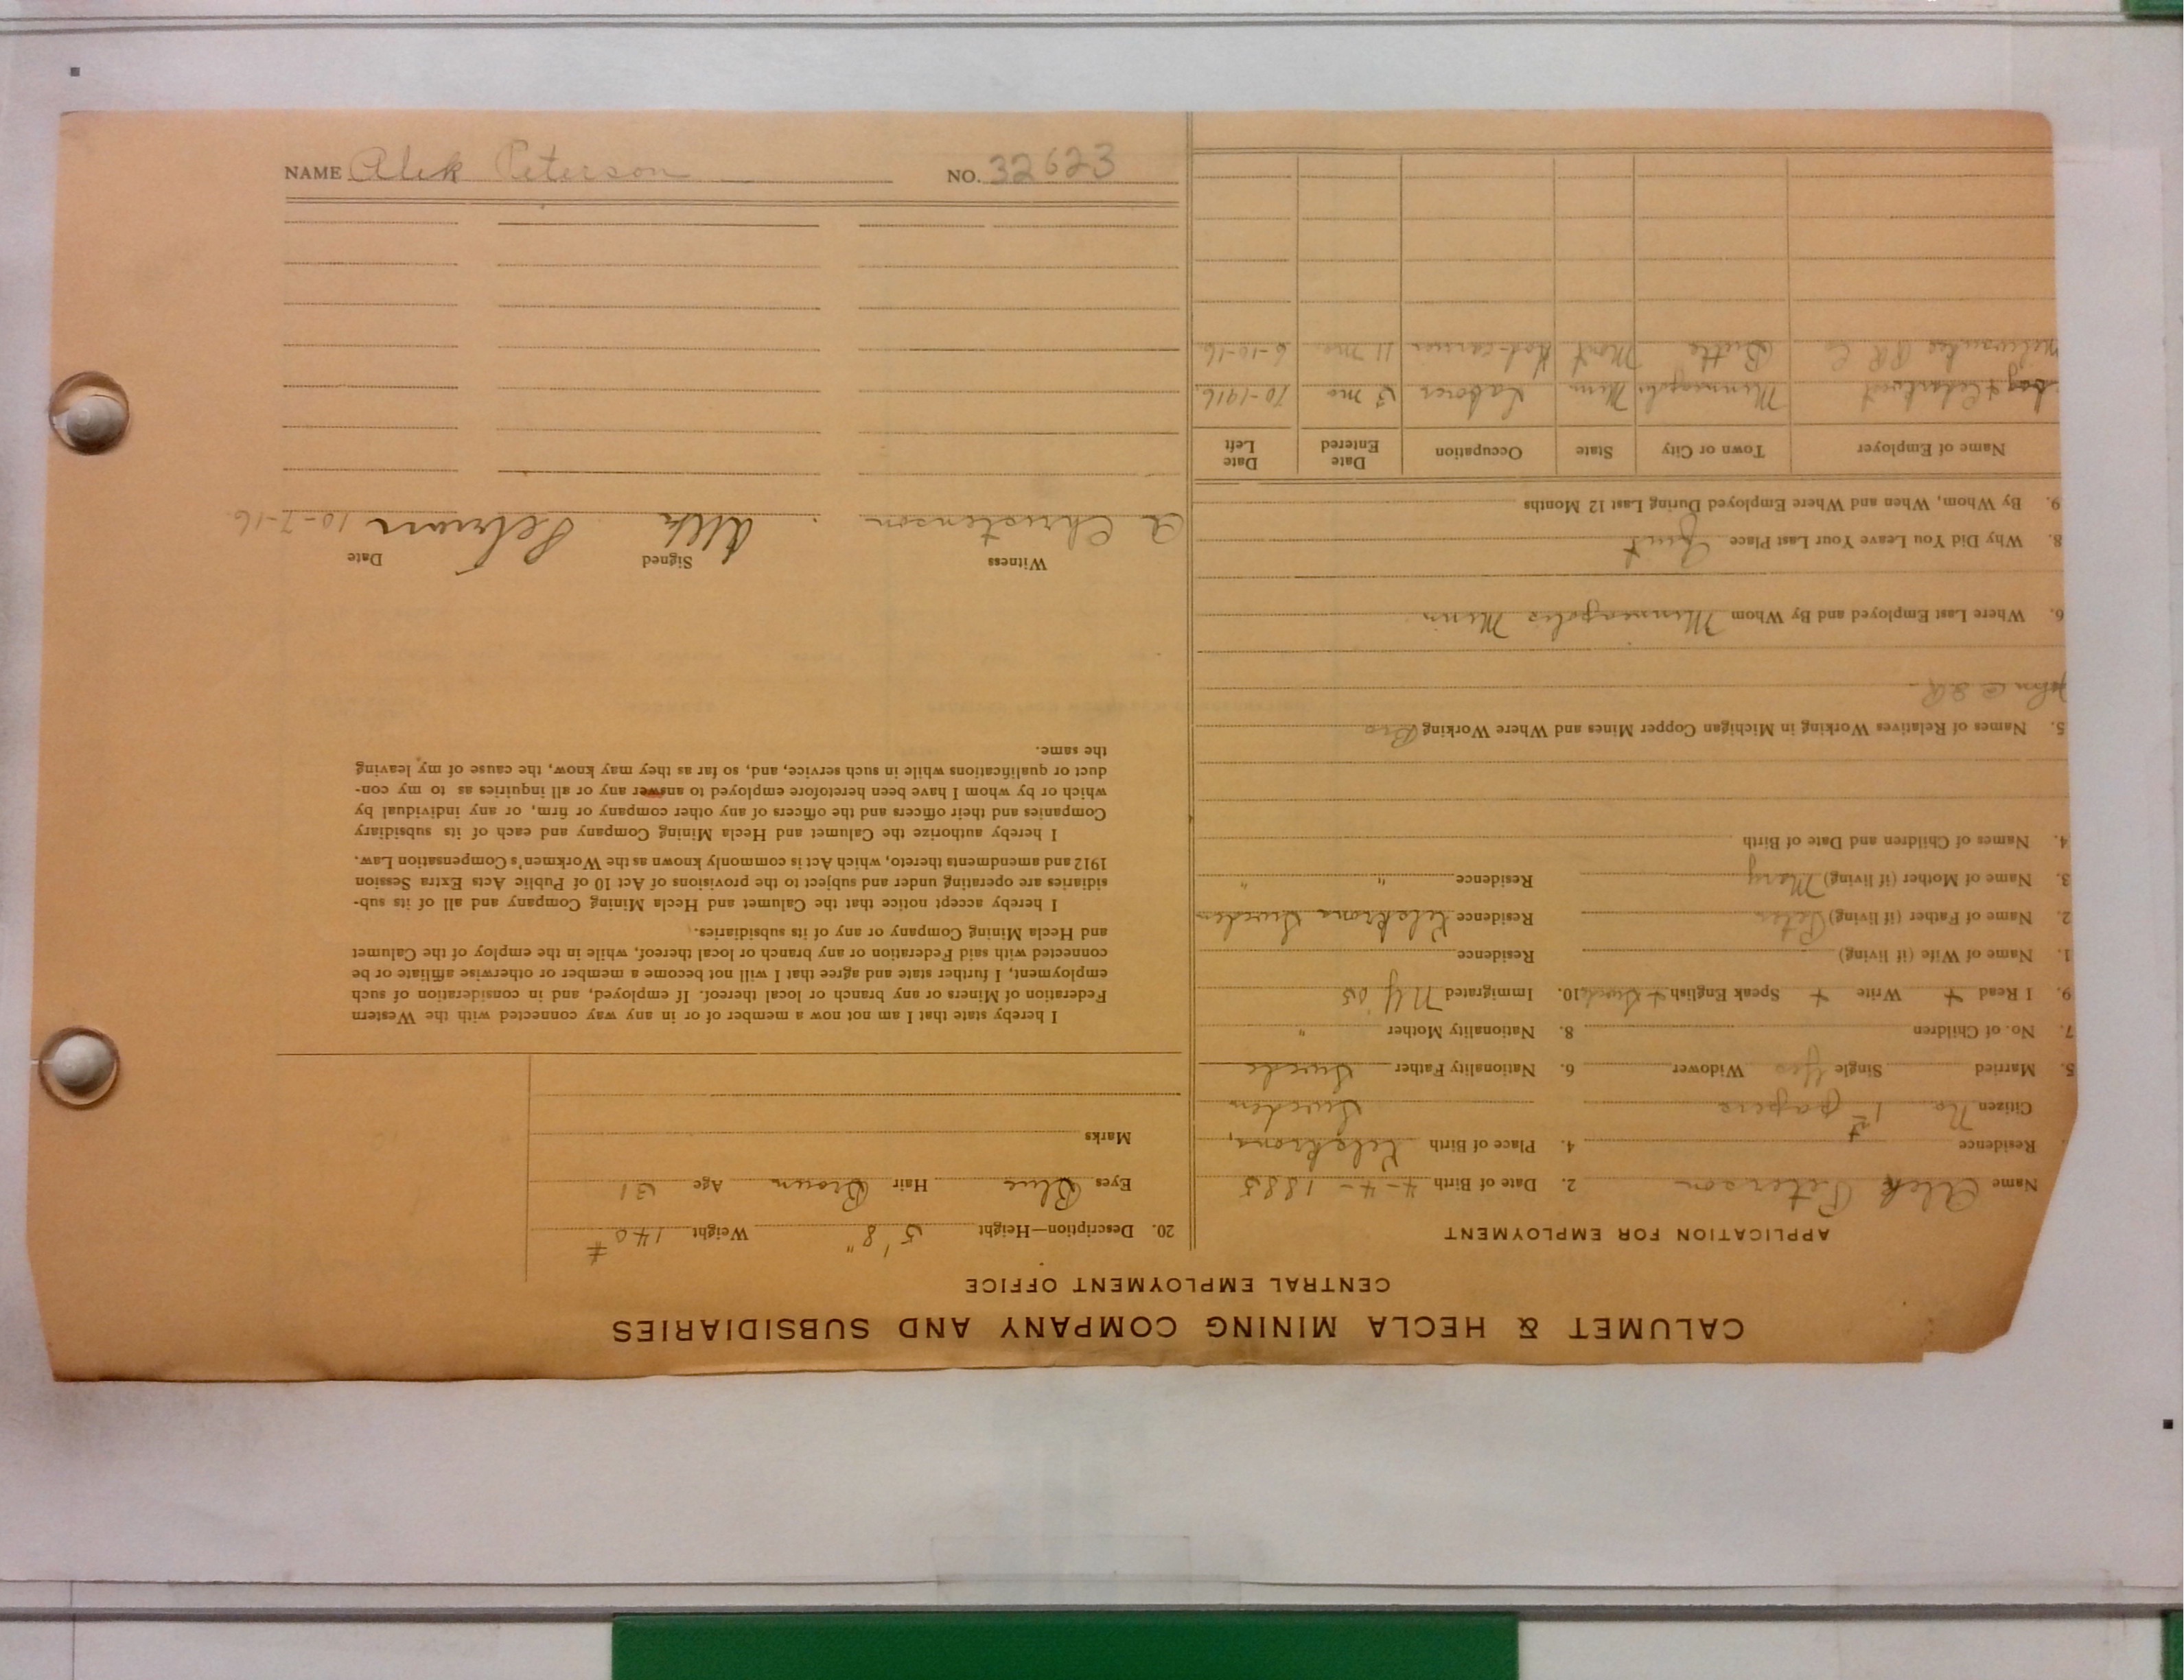 NAME Alek Peterson NO. 32623
CALUMET & HECLA MINING COMPANY AND SUBSIDIARIES
CENTRAL EMPLOYMENT OFFICE
APPLICATION FOR EMPLOYMENT
Name Alek Peterson 2. Date of Birth 4-4-1885
Residence 4. Place of Birth
Citizen No 1st papers Sweden
5. Married Single Yes Widower 6. Nationality Father Swede
7. No. of Children 8. Nationality Mother "
9. I Read + Write + Speak English + 10. Immigrated My 05
1. Name of Wife (if living) Residence
2. Name of Father (if living) Peter Residence Sweden
3. Name of Mother (if living) Mary Residence " "
4. Names of Children and Date of Birth
5. Names of Relatives Working in Michigan Copper Mines and Where Working Bro
John
6. Where Last Employed and By Whom Minneapolis Minn
8. Why Did You Leave Your Last Place Quit
9. By Whom, When and Where Employed During Last 12 Months
Name of Employer Town or City State Occupation Date Entered Date Left
Minneapolis Minn Laborer 3 mo 10-1916
RR Co Butte Mont 11 mo. 6-10-16
20. Description—Height 5'8" Weight 140#
Eyes Blue Hair Brown Age 31
Marks
I hereby state that I am not now a member of or in any way connected with the Western
Federation of Miners or any branch or local thereof. If employed, and in consideration of such
employment, I further state and agree that I will not become a member or otherwise affiliate or be
connected with said Federation or any branch or local thereof, while in the employ of the Calumet
and Hecla Mining Company or any of its subsidiaries.
I hereby accept notice that the Calumet and Hecla Mining Company and all of its sub-
sidiaries are operating under and subject to the provisions of Act 10 of Public Acts Extra Session
1912 and amendments thereto, which Act is commonly known as the Workmen's Compensation Law.
I hereby authorize the Calumet and Hecla Mining Company and each of its subsidiary
Companies and their officers and the officers of any other company or firm, or any individual by
which or by whom I have been heretofore employed to answer any or all inquiries as to my con-
duct or qualifications while in such service, and, so far as they may know, the cause of my leaving
the same.
Witness Signed Date
A Christenson Alek 10-7-16